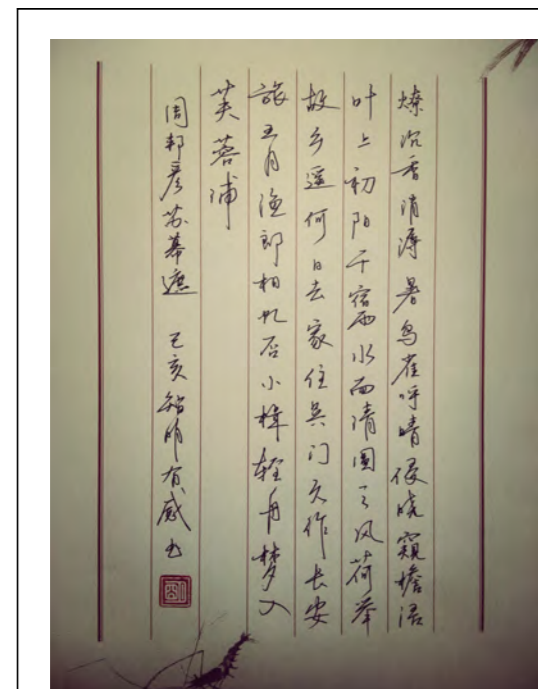 燎沉香消溽暑鸟雀呼晴侵晓窥檐语
叶上初阳干宿雨水面清圆一一风荷举
故乡遥何日去家住吴门久作长安
旅五月渔郎相忆否小楫轻舟梦入
芙蓉浦
周邦彦苏幕遮 己亥 有感书